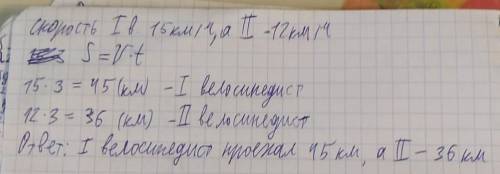 скорость I в 15км/ч, а II -12км/ч
S=V·t
15·3 = 45 (км) -I велосипедист
12·3 = 36 (км) -II велосипедист
Ответ: I велосипедист проехал 45 км, а II - 36 км